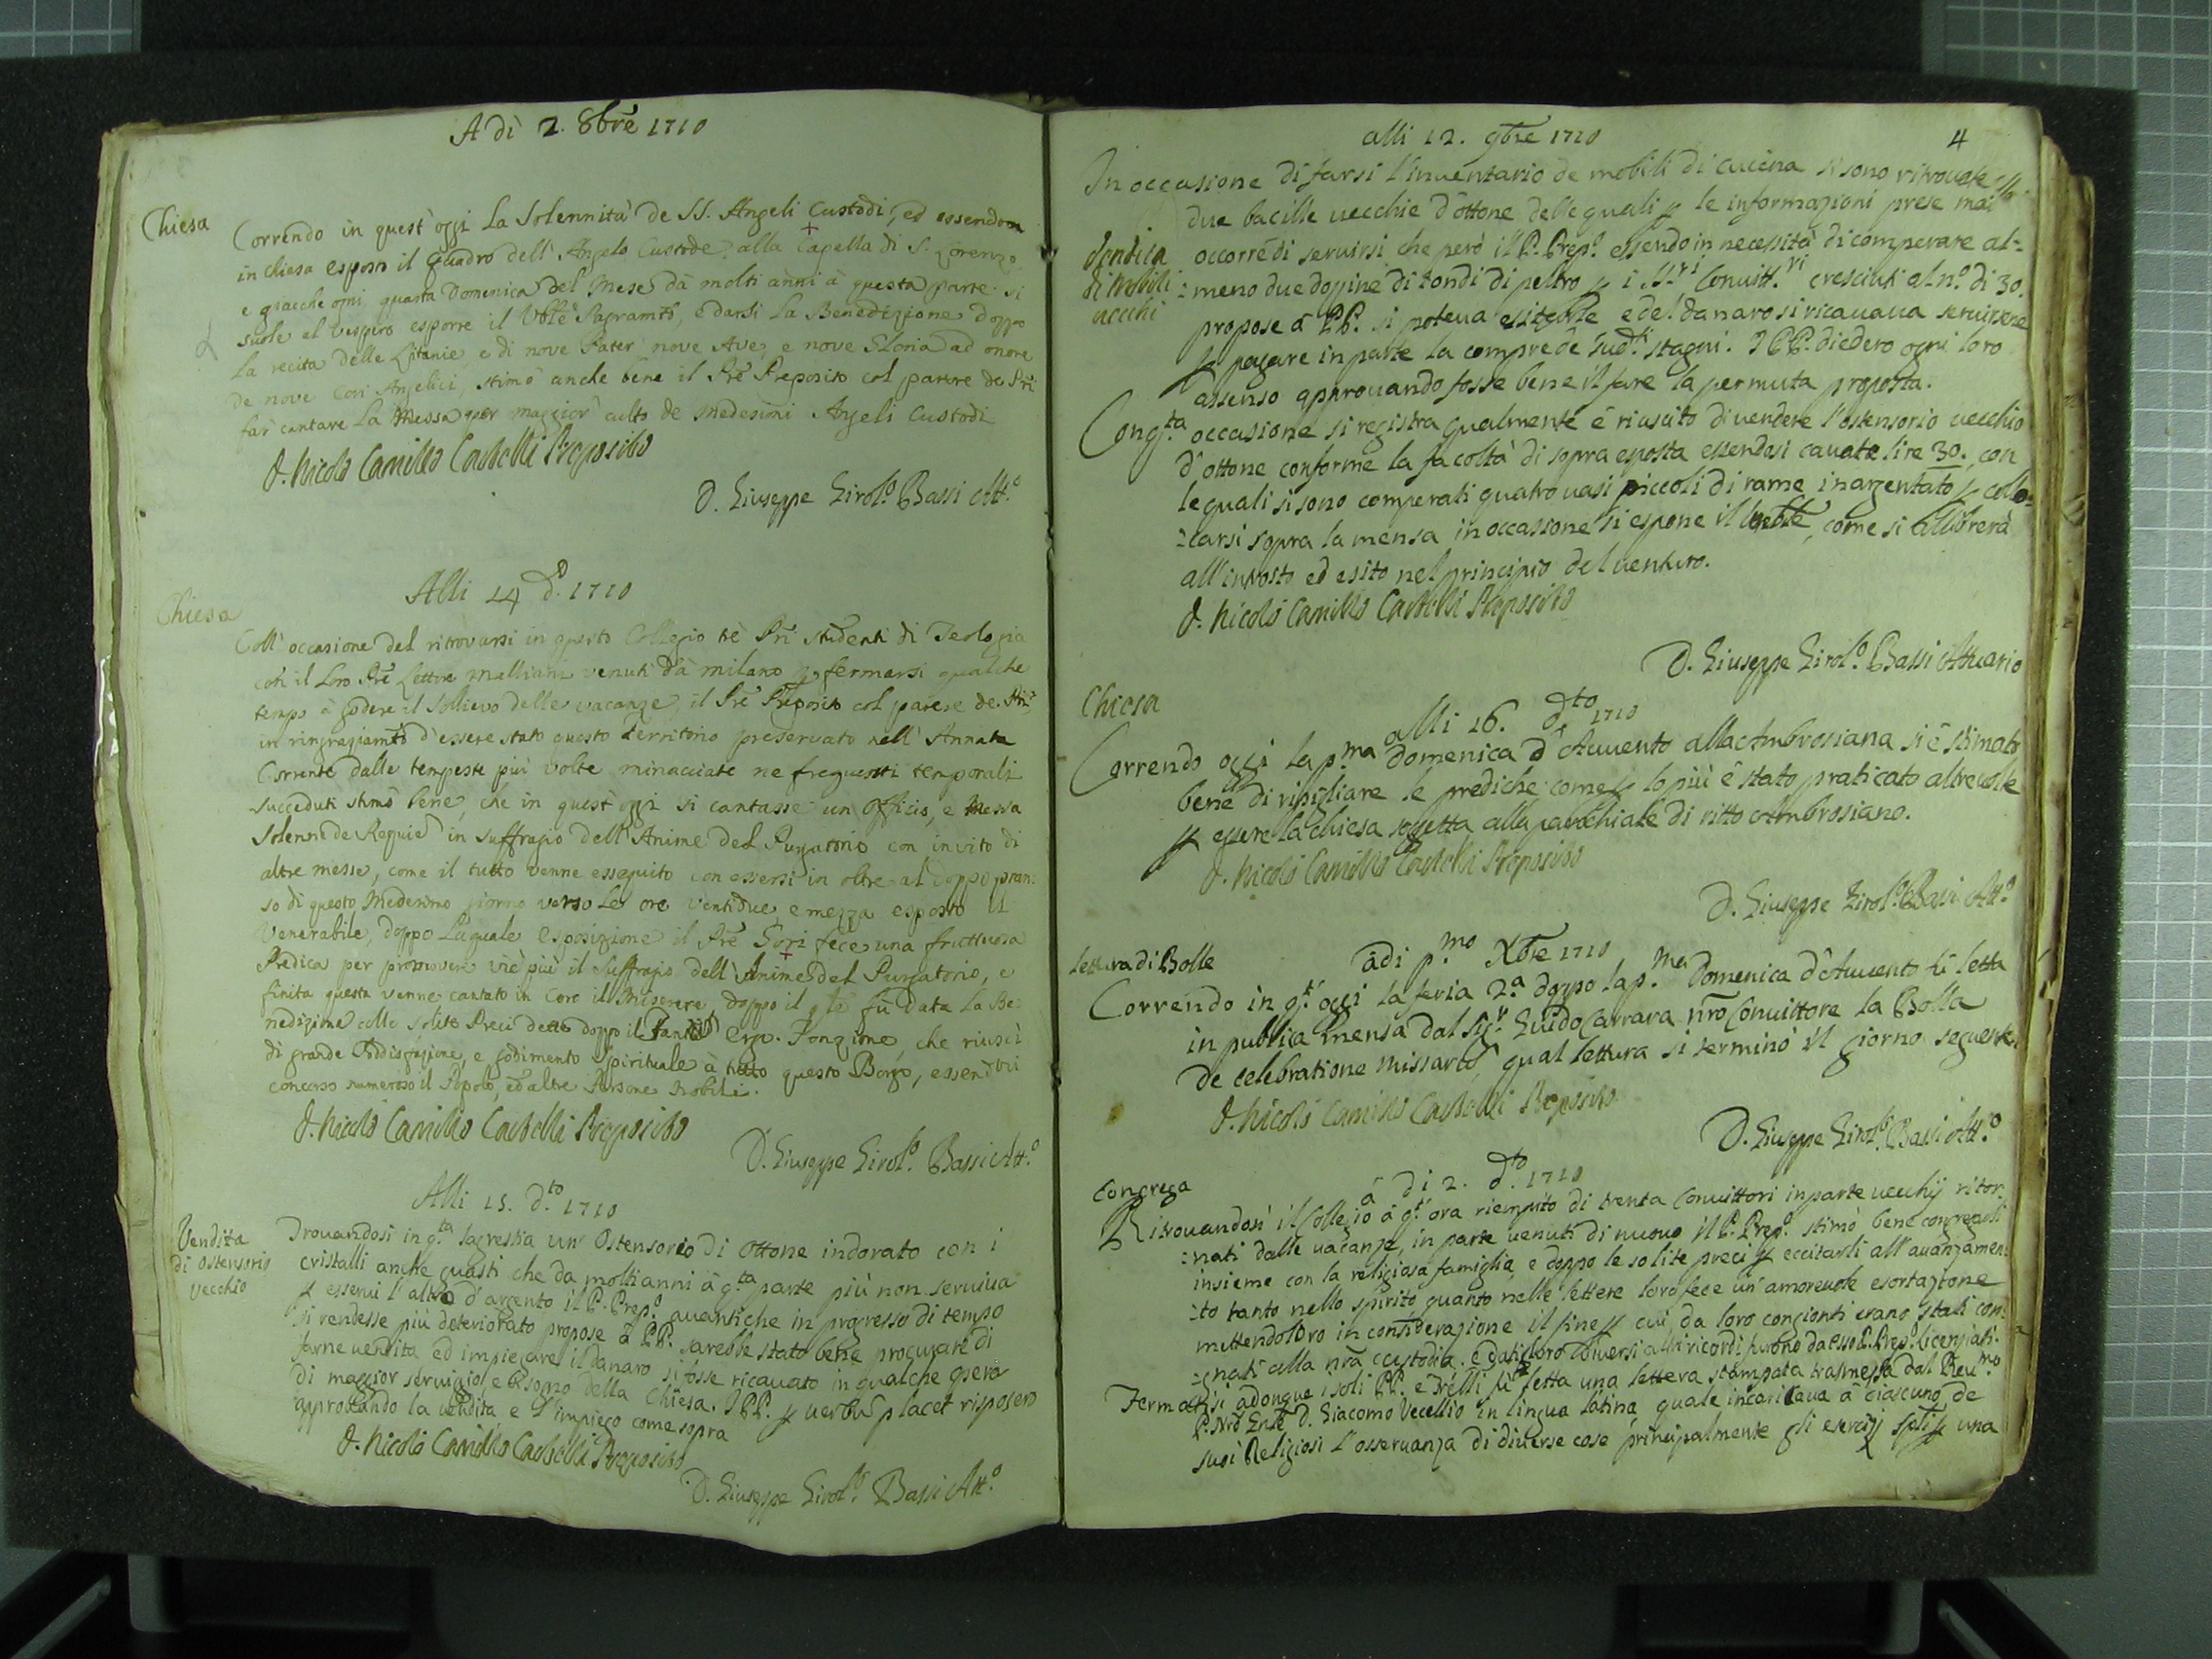 A dì 2. 8bre 1710
Chiesa
Correndo in quest'oggi La Solennità de SS. Angeli Custodi, ed essendosi
in chiesa esposto il Quadro dell'Angelo Custode alla Capella di S. Lorenzo,
e giacche ogni quarta Domenica del Mese dà molti anni à questa parte si
suole al Vespro esporre il Vble Sagramto, e darsi La Benedizione doppo
La recita delle Litanie, e di nove Pater nove Ave, e nove Gloria ad onore
de nove Cori Angelici, stimò anche bene il Pre Preposito col parere de Pri
far cantare La Messa per maggior culto de medesimi Angeli Custodi
D. Nicolò Camillo Castelli Preposito
D. Giuseppe Girol.o Bassi Att.o
Alli 14 d.o 1710
Chiesa
Coll'occasione del ritrovarsi in questo Collegio tè Pri studenti di Teologia
con il Loro Pre Lettore Malliani venuti dà milano p fermarsi qualche
tempo à godere il sollievo delle vacanze, il Pre Preposito col parere de Pri
in ringraziamto d'essere stato questo Territorio preservato nell'Annata
Corrente dalle tempeste più volte minacciate ne frequenti temporali
succeduti stimò bene, che in quest'oggi si cantasse un Officio, e Messa
Solenne de Requie in suffragio dell'Anime del Purgatorio con invito di
altre messe, come il tutto venne esseguito con essersi in oltre al doppo pran:
so di questo Medesimo giorno verso Le ore ventidue, e mezza esposto il
Venerabile, doppo Laquale esposizione il Pre Gorj fece una fruttuosa
Predica per promovere viè più il suffragio dell'Anime del Purgatorio, e
finita questa venne cantato in Coro il Miserere doppo il qle fù data La Be:
nedizione colle solite Preci dette doppo il Tantù Ergo. Fonzione, che riuscì
di grande sodisfazione, e godimento spirituale à tutto questo Borgo, essendovi
concorso numeroso il Popolo, ed altre Persone Nobili.
D. Nicolò Camillo Castelli Preposito
D. Giuseppe Girol.o Bassi Att.o
Alli 15. d.to 1710
Vendita
di ostensorio
vecchio
Trovandosi in q.ta sagrestia un'Ostensorio di ottone indorato con i
cristalli anche guasti che da molti anni à q.ta parte più non serviva
p esservi l'altro d'argento il P. Prep.o avanti che in progresso di tempo
si rendesse più deteriorato propose à PP. sarebbe stato bene procurare di
farne vendita ed impiegare il danaro si fosse ricavato in qualche opera
di maggior servigio e bisogno della Chiesa. I PP. p verbù placet risposero
approvando la vendita e l'impiego come sopra
D. Nicolò Camillo Castelli Preposito
D. Giuseppe Girol.o Bassi Att.o
4
alli 12. 9bre 1710
In occasione di farsi l'inventario de mobili di cucina si sono ritrovate
due bacille vecchie d'ottone delle quali p le informazioni prese mai
Vendita
di mobili
vecchi
occorre di servirsi, che però il P. Prep.o essendo in necessità di comperare al=
:meno due dozine di tondi di peltro p i SS.ri Convitt.ri cresciuti al n.o di 30.
propose à PP. si poteva esitarle e del danaro si ricavava servirsene
p pagare in parte la compre de sud.ti stagni. I PP. diedero ogni loro
assenso approvando fosse bene il fare la permuta proposta.
Cong.ta occasione si registra qualmente è riuscito di vendere l'ostensorio vecchio
d'ottone conforme la facoltà di sopra esposta essendosi cavate lire 30. con
le quali si sono comperati quatro vasi piccoli di rame inargentato p collo=
=carsi sopra la mensa in occassione si espone il Vnble, come si allibrerà
all'introito ed esito nel principio del venturo.
D. Nicolò Camillo Castelli Preposito
D. Giuseppe Girol.o Bassi Attuario
Chiesa
alli 16. d.to 1710
Correndo oggi la p.ma Domenica d'Avvento alla Ambrosiana si è stimato
bene di ripigliare le prediche come p lo più è stato praticato altre volte
p essere la chiesa soggetta alla parochiale di ritto Ambrosiano.
D. Nicolò Camillo Castelli Preposito
D. Giuseppe Girol.o Bassi Att.o
lettura di Bolle
àdi p.mo Xbre 1710
Correndo in q.t'oggi la feria 2.a doppo la p.ma Domenica d'Avvento fù letta
in publica mensa dal Sig.r Guido Carrara nro Convittore la Bolla
De celebratione Missarù, qual lettura si terminò il giorno seguente.
D. Nicolò Camillo Castelli Preposito
D. Giuseppe Girol.o Bassi Att.o
Congrega
à di 2. d.to 1710
Ritrovandosi il Collegio à q.t'ora riempito di trenta Convittori in parte vecchij ritor:
:nati dalle vacanze, in parte venuti di nuovo il P. Prep.o stimò bene congregarli
insieme con la religiosa famiglia, e doppo le solite preci p eccitarli all'avanzamen:
:to tanto nello spirito quanto nelle lettere loro fece un'amorevole esortazione
mettendo loro in considerazione il fine p cui da loro congionti erano stati con:
:gnati alla nra custodia. e dati loro diversi altri ricordi furono da esso P. Prep.o licenziati.
Fermatisi adonque i soli PP. e Frelli fù letta una lettera stampata trasmessa dal Rev.mo
P. Nro Gnle D. Giacomo Vecellio in lingua latina, quale incaricava à ciascuno de
suoi Religiosi l'osservanza di diverse cose principalmente gli esercizij spli p una